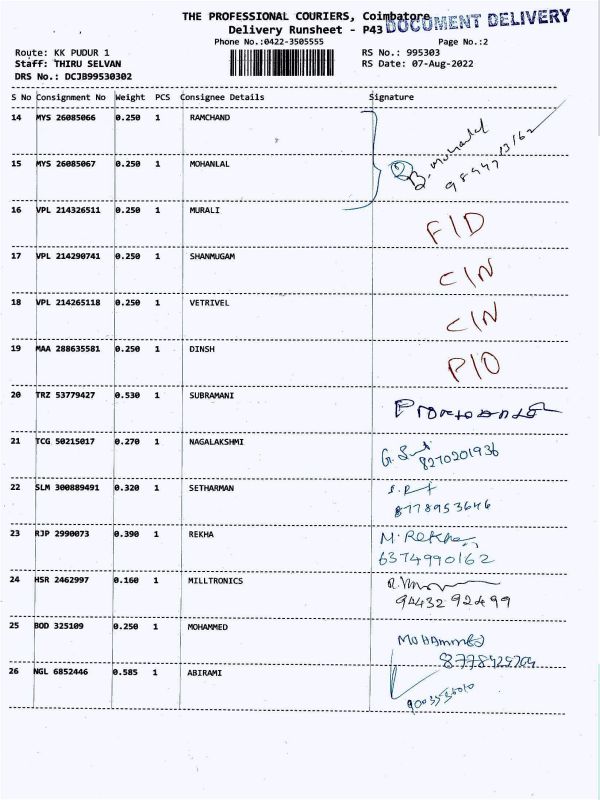 THE PROFESSIONAL COURIERS, Coimbatore
DOCUMENT DELIVERY
Delivery Runsheet - P43
Phone No.:0422-3505555 Page No.:2
Route: KK PUDUR 1 RS No.: 995303
Staff: THIRU SELVAN RS Date: 07-Aug-2022
DRS No.: DCJB99530302
S No Consignment No Weight PCS Consignee Details Signature
14 MYS 26085066 0.250 1 RAMCHAND
15 MYS 26085067 0.250 1 MOHANLAL 2
16 VPL 214326511 0.250 1 MURALI F/D
17 VPL 214290741 0.250 1 SHANMUGAM C/N
18 VPL 214265118 0.250 1 VETRIVEL C/N
19 MAA 288635581 0.250 1 DINSH P/O
20 TRZ 53779427 0.530 1 SUBRAMANI
21 TCG 50215017 0.270 1 NAGALAKSHMI
8270201936
22 SLM 300889491 0.320 1 SETHARMAN
8778953646
23 RJP 2990073 0.390 1 REKHA M. Rekha
6374990162
24 HSR 2462997 0.160 1 MILLTRONICS
94432 92499
25 BOD 325109 0.250 1 MOHAMMED MOHAMMED
26 NGL 6852446 0.585 1 ABIRAMI